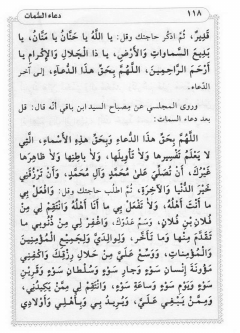 ١١٨
دعاء السّمات
قَدِيرٌ، ثُمَّ اذكر حاجتك وقل: يا اَللهُ يا حَنّانُ يا مَنّانُ، يا
بَدِيعَ السَّماواتِ وَالأَرْضِ، يا ذَا الْجَلالِ وَالإِكْرامِ يا
أَرْحَمَ الرّاحِمِينَ، اَللّهُمَّ بِحَقِّ هذَا الدُّعاءِ، إلى آخر
الدّعاء.
وروى المجلسي عن مِصباح السيد ابن باقي أنه قال: قل
بعد دعاء السمات:
اَللّهُمَّ بِحَقِّ هذَا الدُّعاءِ وَبِحَقِّ هذِهِ الأَسْماءِ، الَّتِي
لا يَعْلَمُ تَفْسِيرَها وَلا تَأْوِيلَها، وَلا باطِنَها وَلا ظاهِرَها
غَيْرُكَ، أَنْ تُصَلِّيَ عَلى مُحَمَّدٍ وَآلِ مُحَمَّدٍ، وَأَنْ تَرْزُقَنِي
خَيْرَ الدُّنْيا وَالآخِرَةِ، ثُمَّ اطلب حاجتك وقل: وَافْعَلْ بِي
ما أَنْتَ أَهْلُهُ وَلا تَفْعَلْ بِي ما أَنَا أَهْلُهُ وَانْتَقِمْ لِي مِنْ
فُلانِ بْنِ فُلانٍ، وَسَمِّ عَدُوَّكَ، وَاغْفِرْ لِي مِنْ ذُنُوبِي ما
تَقَدَّمَ مِنْها وَما تَأَخَّرَ، وَلِوالِدَيَّ وَلِجَمِيعِ الْمُؤْمِنِينَ
وَالْمُؤْمِناتِ، وَوَسِّعْ عَلَيَّ مِنْ حَلالِ رِزْقِكَ وَاكْفِنِي
مَؤُونَةَ إِنْسانِ سَوْءٍ وَجارِ سَوْءٍ وَسُلْطانِ سَوْءٍ وَقَرِينِ
سَوْءٍ وَيَوْمِ سَوْءٍ وَساعَةِ سَوْءٍ، وَانْتَقِمْ لِي مِمَّنْ يَكِيدُنِي،
وَمِمَّنْ يَبْغِي عَلَيَّ، وَيُرِيدُ بِي وَبِأَهْلِي وَأَوْلادِي